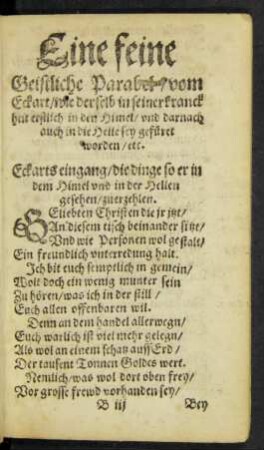 Eine feine
Geistliche Parabel / vom
Eckart / wie derselb in seiner kranck
heit erstlich in den Himel / vnd darnach
auch in die Helle sey gefüret
worden / etc.
Eckarts eingang / die dinge so er in
dem Himel vnd in der Hellen
gesehen / zuerzehlen.
GEliebten Christen die jr jtzt /
An diesem tisch beinander sitzt /
Vnd wie Personen wol gestalt /
Ein freundlich vnterredung halt.
Ich bit euch semptlich in gemein /
Wolt doch ein wenig munter sein
Zu hören / was ich in der still /
Euch allen offenbaren wil.
Denn an dem handel allerwegn /
Euch warlich ist viel mehr gelegn /
Als wol an einem schatz auff Erd /
Der tausent Tonnen Goldes wert.
Nemlich / was wol dort oben frey /
Vor grosse frewd vorhanden sey /
B iij Bey